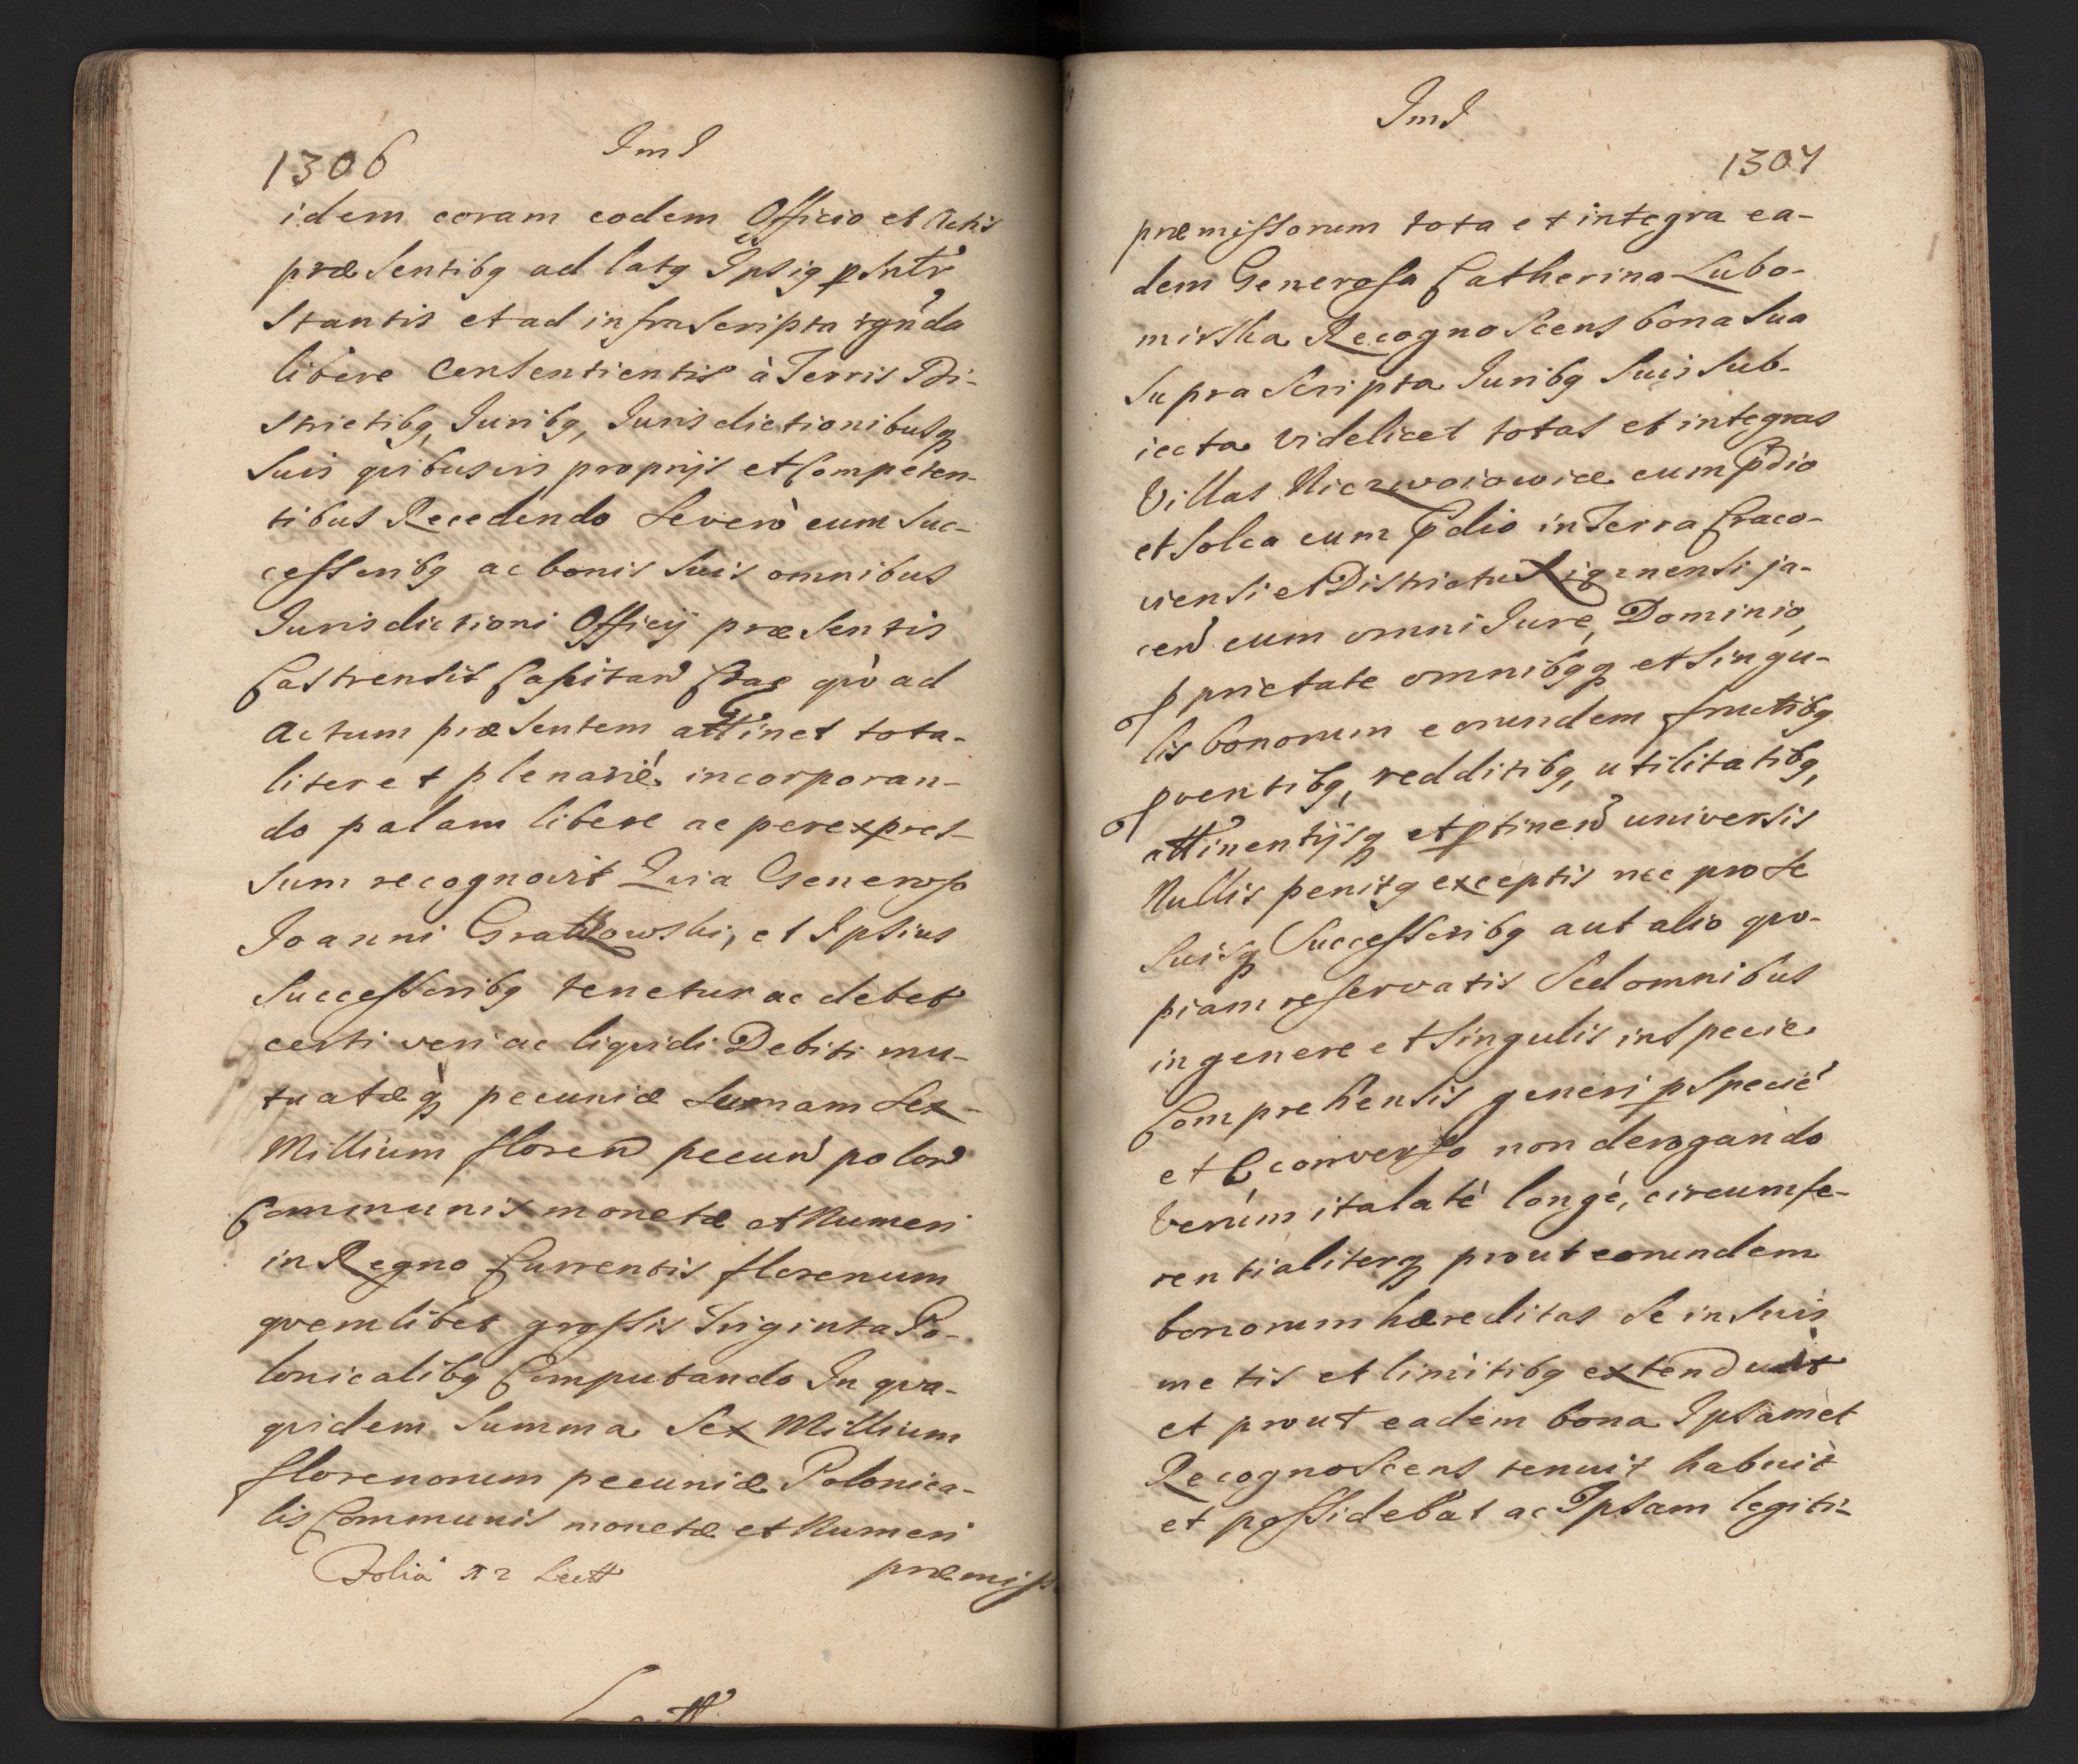 1306
Jmd
idem coram eodem Officio et Actis
præsentibq ad latq Ipsiq
stantis et ad infrascripta
libere Consentientis à Terris Di-
strictibq, Juribq, Jurisdictionibusq
Suis qvibusvis proprijs et Competen-
tibus Recedendo Severò cum Suc-
cessoribq ac bonis Suis omnibus
Jurisdictioni Officij præsentis
Castrensis Capitan qvò ad
Actum præsentem attinet tota-
liter et plenariè incorporan-
do palam libere ac per expres-
sum recognovit Qvia Generoso
Joanni Gratkowski, et Ipsius
Successoribq tenetur ac debet
certi veri ac liqvidi Debiti mu-
tuatæq pecuniæ Sumam Sex
Millium floren pecun polon
Communis monetæ et Numeri
in Regno Currentis florenum
qvemlibet grossis Triginta Po-
lonicalibq Computando In qva-
qvidem Summa Sex Millium
florenorum pecuniæ Polonica-
lis Communis monetæ et Numeri
præmiss
Jmd
1307
præmissorum tota et integra ea-
dem Generosa Catherina Lubo-
mirska Recognoscens bona Sua
Suprascripta Juribq Suis Sub-
iecta videlicet totas et integras
Villas Niezwoiowice cum pdio
et Solca cum pdio in Terra Craco-
viensi et Districtu Xigznensi ja-
cen cum omni Jure, Dominio,
pprietate omnibqq et Singu-
lis bonorum eorundem fructibq
pventibq, redditibq, utilitatibq,
attinentijsq et ptinen universis
Nullis penitq exceptis nec pro se
Suisq Successoribq aut alio qvo-
piam reservatis Sed omnibus
in genere et Singulis in Specie
Comprehensis generi p Specie
et E converso non derogando
Verùm ita latè longè, circumfe-
rentialiterq prout eorundem
bonorum hæreditas Se in Suis
metis et limitibq extend
et prout eadem bona Ipsamet
Recognoscens tenuit habuit
et possidebat ac Ipsam legiti-